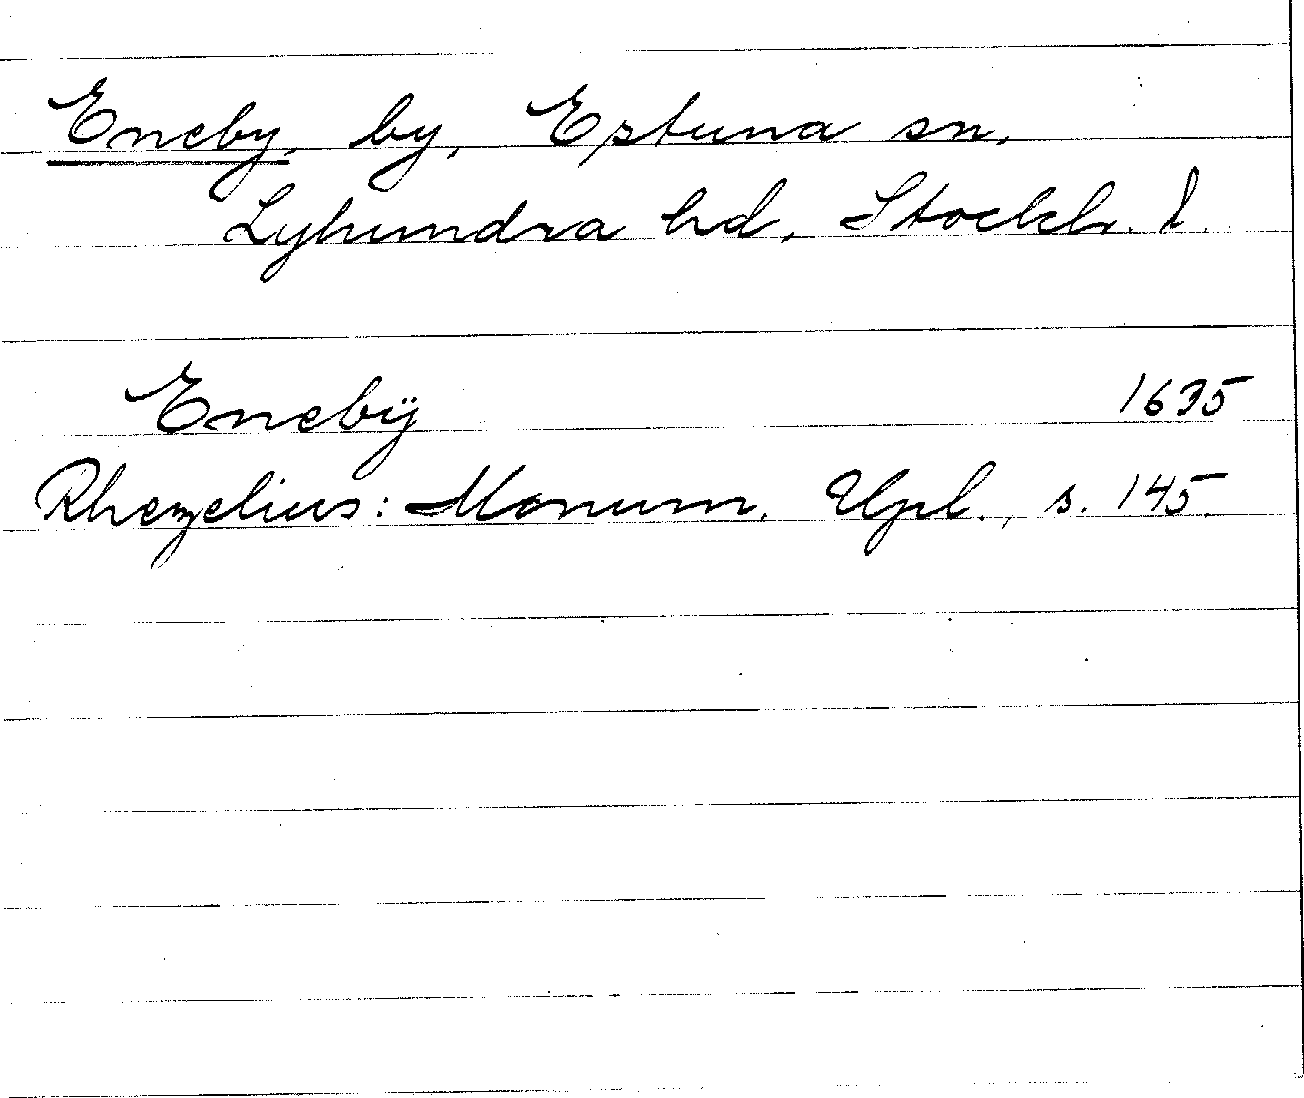 Eneby, by, Estuna sn,
Lyhundra hd, Stockh. l.
Enebÿ 1635
Rhezelius: Monum. Upl., s. 145.